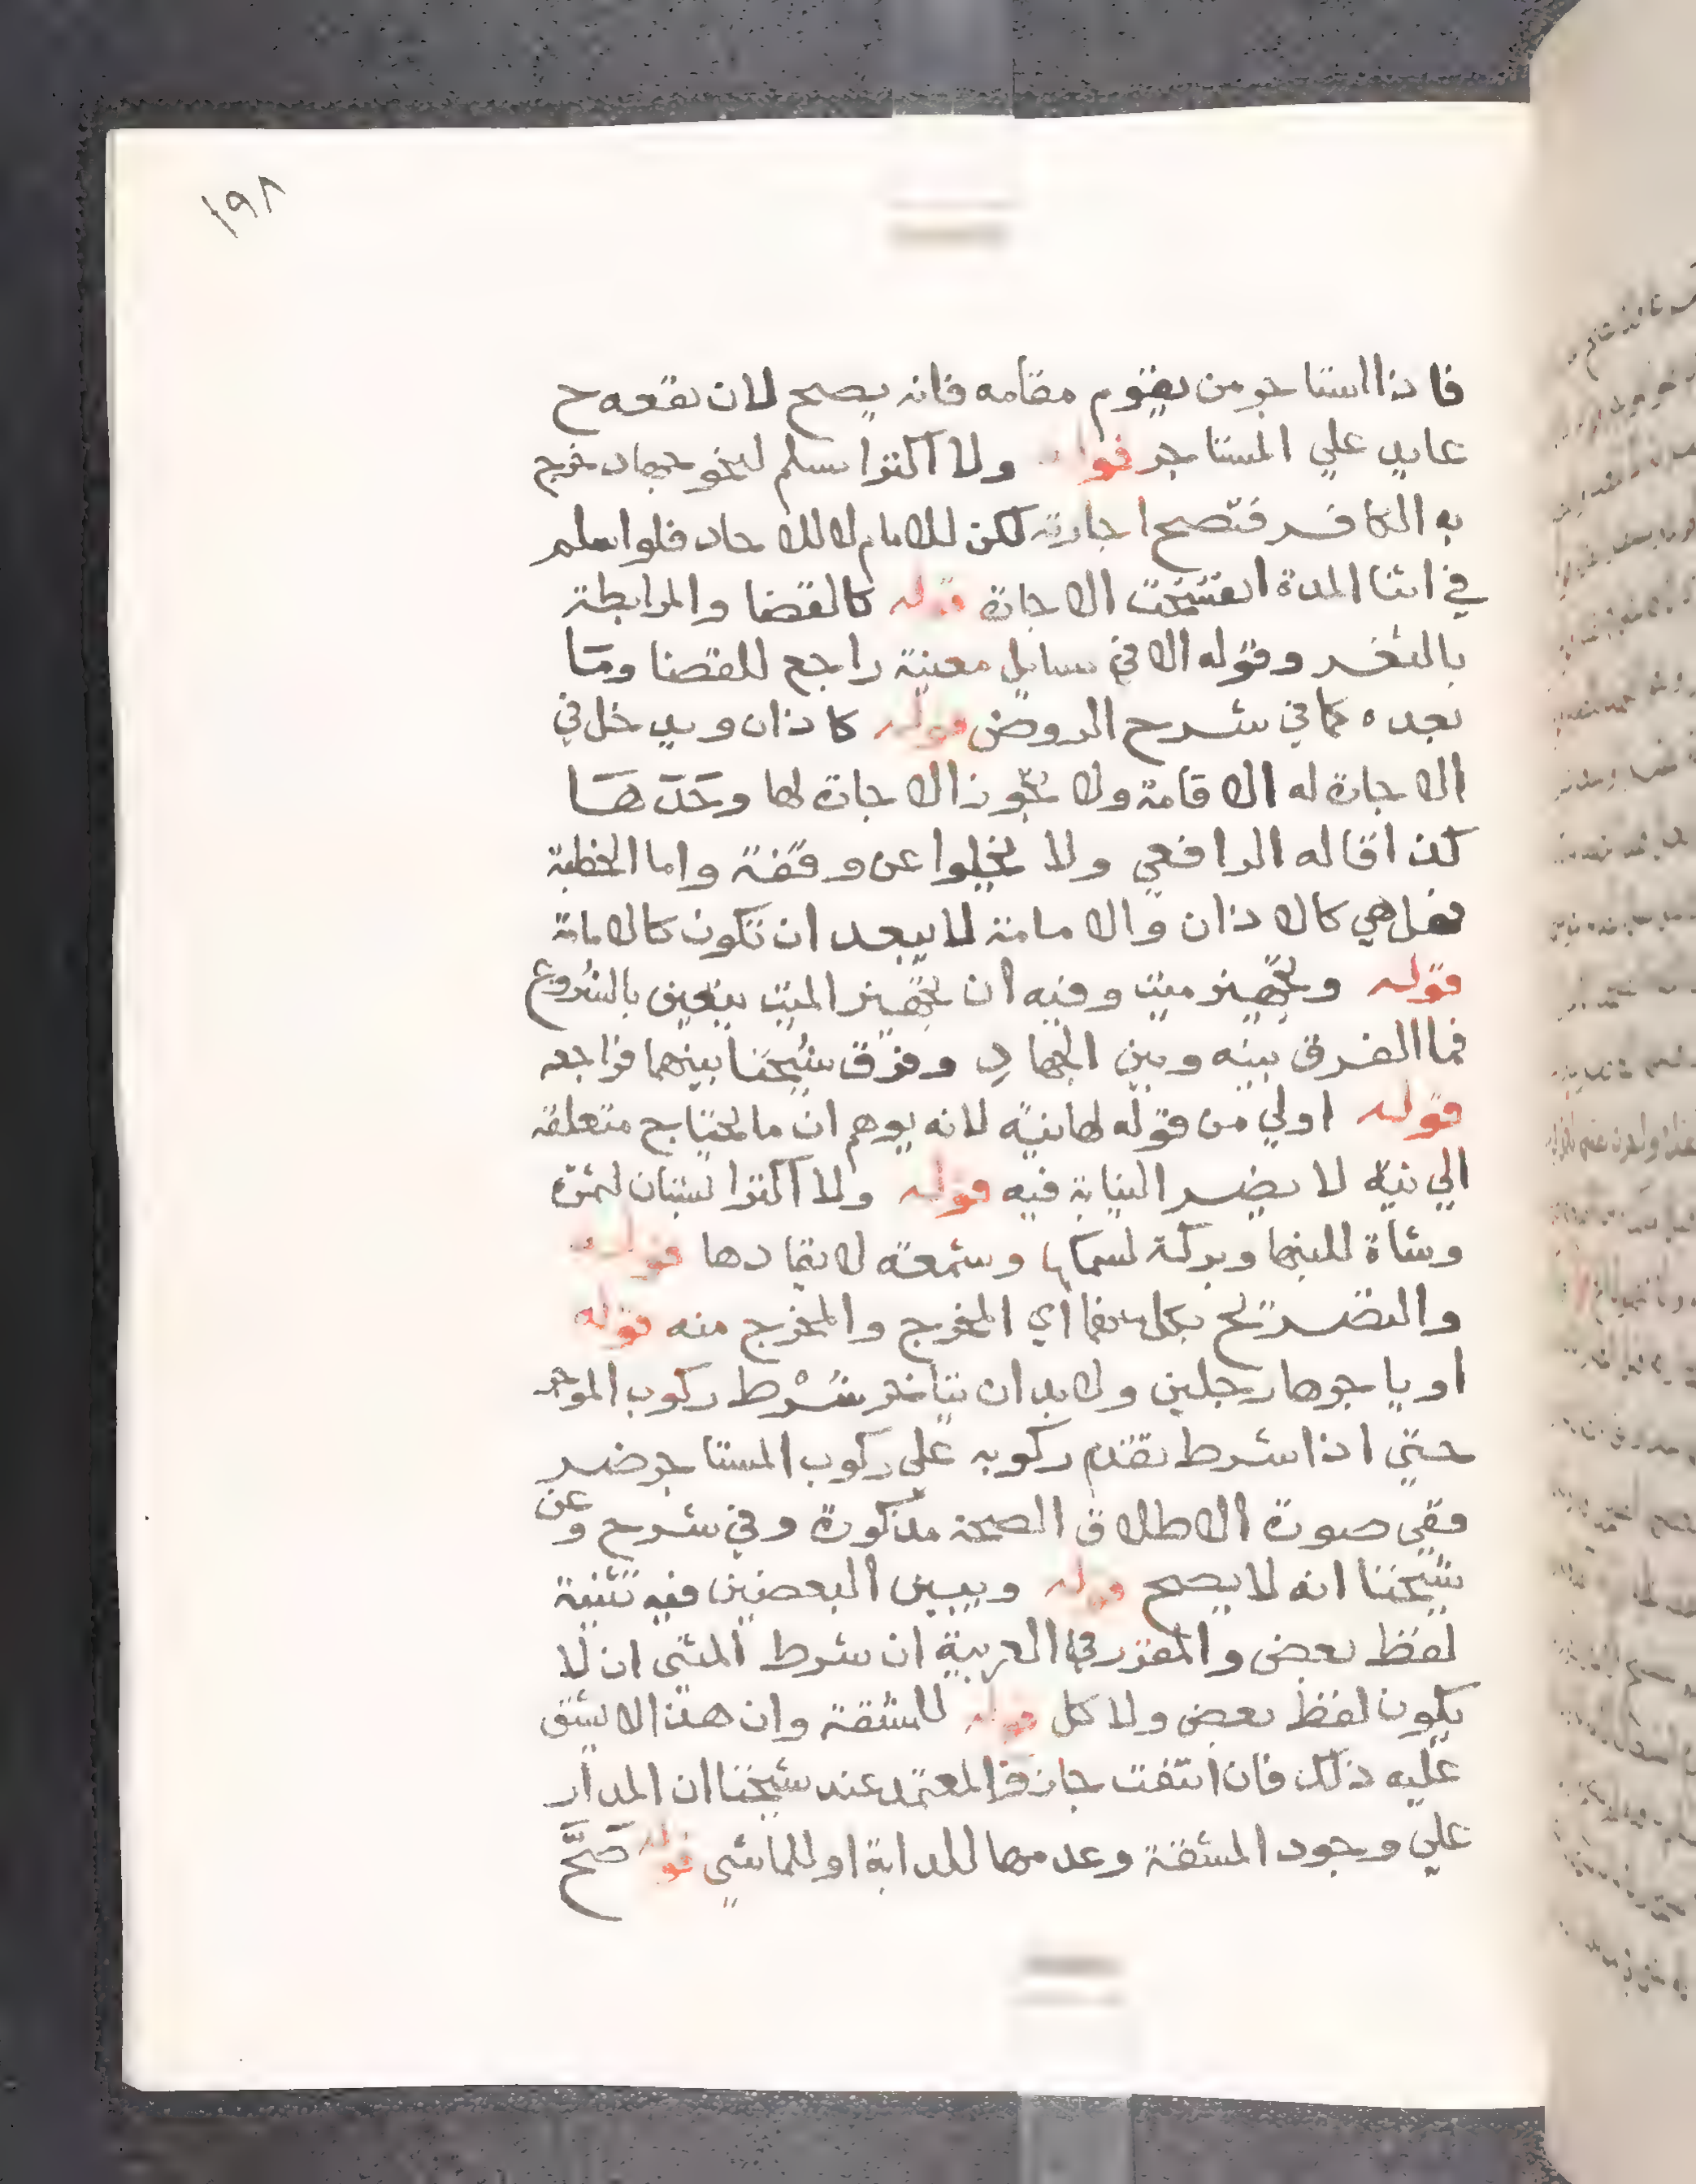 ١٩٨
فاذا استاجر من يقوم مقامه فانه يصح لان نفعه ح
عايد علي المستاجر قوله ولا اكترا مسلم لنحو جهاد خرج
به الكافر فتصح اجارته لكن للامام لا للاحاد فلو اسلم
في اثنا المدة انفسخت الاجارة قوله كالقضا والمرابطة
بالثغر وقوله الا في مسايل معينة راجع للقضا وما
بعده كما في شرح الروض قوله كاذان ويدخل في
الاجارة له الاقامة ولا يجوز الاجارة لها وحدها
كذا قاله الرافعي ولا يخلوا عن وقفة واما الخطبة
فهل هي كالاذان والامامة لا يبعد ان تكون كالامامة
قوله وتجهيز ميت وفيه ان تجهيز الميت يتعين بالشروع
فما الفرق بينه وبين الجهاد وفرق شيخنا بينهما فراجعه
قوله اولي من قوله لها نية لانه يوهم ان ما يحتاج متعلقه
الي نية لا يضر النيابة فيه قوله ولا اكترا بستان لثمره
وشاة للبنها وبركة لسمكها وشمعة لايقادها قوله
والتصريح بكل منهما اي المخرج والمخرج منه قوله
او ياجرها رجلين ولا بد ان يتاخر شرط ركوب الموجر
حتي اذا شرط تقدم ركوبه علي ركوب المستاجر ضر
ففي صورة الاطلاق الصحة مذكورة وفي شرح وعن
شيخنا انه لا يصح قوله ويبين البعضين فيه تثنية
لفظ بعض والمقرر في العربية ان شرط المثني ان لا
يكون لفظ بعض ولا كل قوله للمشقة وان هذا لا يشق
عليه ذلك فان انتفت جاز فالمعتمد عند شيخنا ان المدار
علي وجود المشقة وعدمها للدابة او للماشي قوله صح